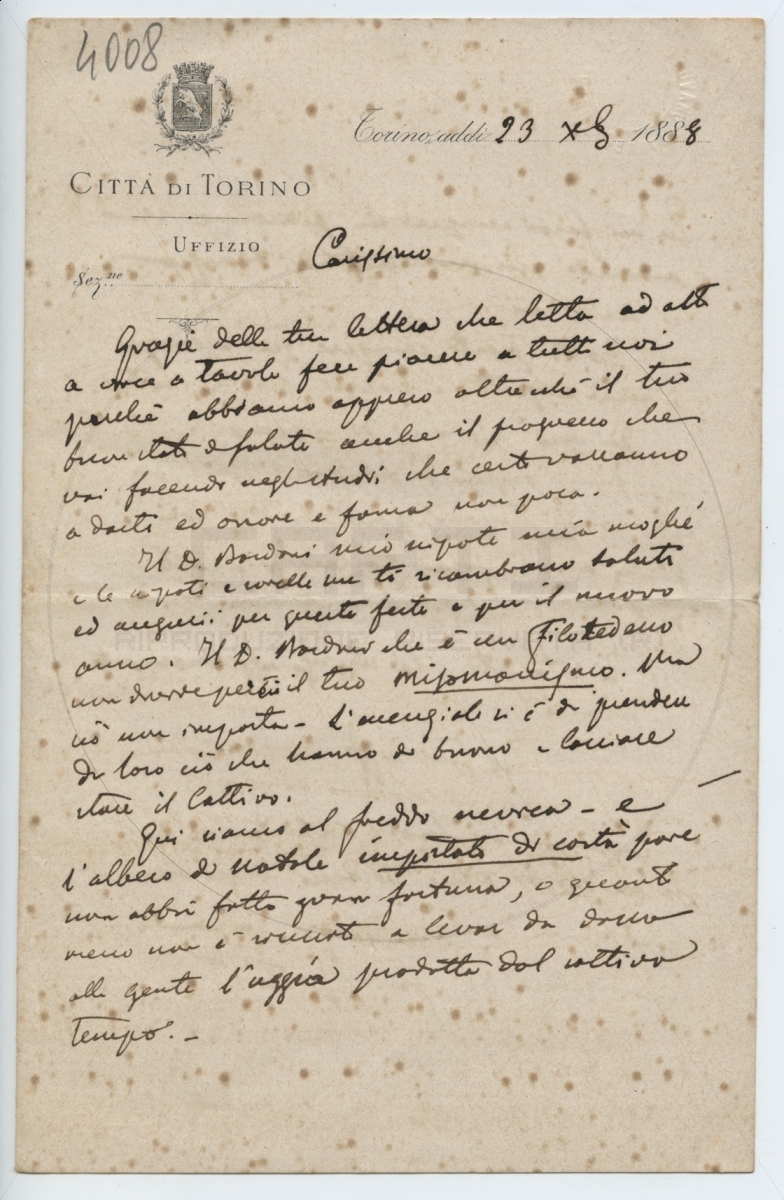 4008
Torino, addì 23 Xb 1888
CITTÀ DI TORINO
UFFIZIO
Sez.ne
Carissimo
Grazie della tua lettera che letta ad alta
a voce a tavola fece piacere a tutti noi
perchè abbiamo appreso oltrechè il tuo
buon stato di salute anche il progresso che
vai facendo negli studi che certo varranno
a darti ed onore e fama non poca.
Il D. Bordoni mio nipote mia moglie
e le nipoti e sorelle me ti ricambiano saluti
ed augurii per queste feste e per il nuovo
anno. Il D. Bordoni che è un filotedesco
non divide il tuo Misogermanismo. Ma
ciò non importa - L'essenziale si è di prendere
da loro ciò che hanno di buono e lasciare
stare il cattivo.
Qui siamo al freddo nevica - e
l'albero di natale importato di costà pare
non abbia fatto gran fortuna, o quanto
meno non è riuscito a levar da dosso
alla gente l'uggia prodotta dal cattivo
tempo. -